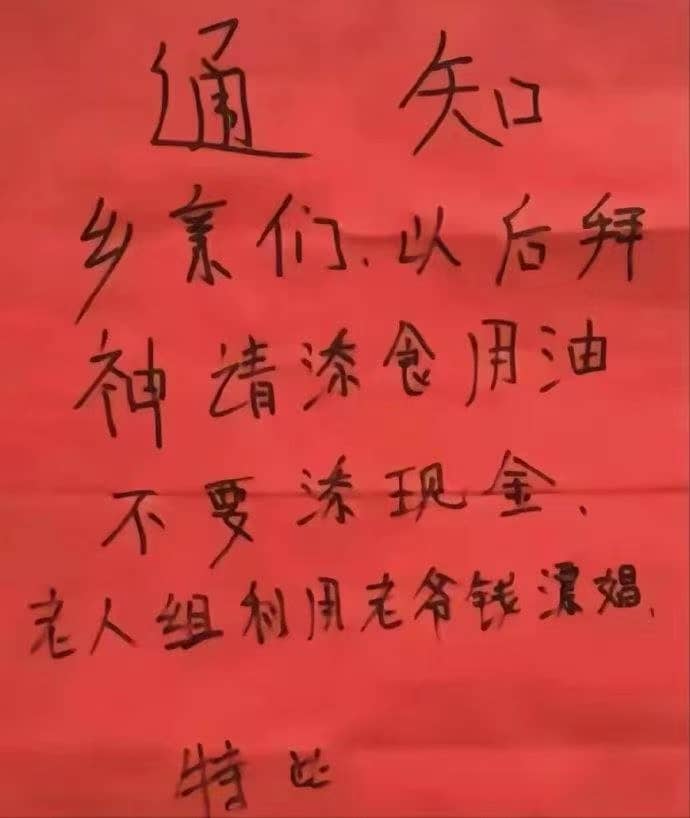 通知
乡亲们、以后拜
神请添食用油
不要添现金、
老人组利用老爷钱漂娼、
特此